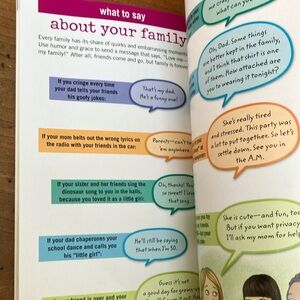 what to say
about your family
Every family has its share of quirks and embarrassing moments.
Use humor and grace to send a message that says, "Love me—
my family!" After all, friends come and go, but family is forever
If you cringe every time
your dad tells your friends
his goofy jokes:
That's my dad.
He's a funny one!
If your mom belts out the wrong lyrics on
the radio with your friends in the car:
Parents—can't
'm anywhere.
If your sister and her friends sing the
dinosaur song to you in the halls,
because you loved it as a little girl:
Oh, thanks! You
so sweet! I love
that song.
If your dad chaperones your
school dance and calls you
his "little girl":
He'll still be saying
that when I'm 50.
friend is over and your
Guess it's not a
good day for grown-
what can you
Oh, Dad. Some things
are better kept in the family,
and I think that shirt is one
of them. How attached are
you to wearing it tonight?
She's really tired
and stressed. This party was
a lot to put together. So let's
settle down. See you in
the A.M.
She is cute—and fun, too
But if you want privacy
I'll ask my mom for help